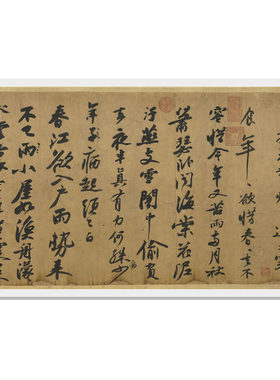 食年〻欲惜春〻去不
容惜今年又苦雨兩月秋
蕭瑟卧聞海棠花泥
汙燕支雪闇中偷負
去夜半真有力何殊少
年子病起頭已白
春江欲入戶雨勢來
不已雨小屋如漁舟濛